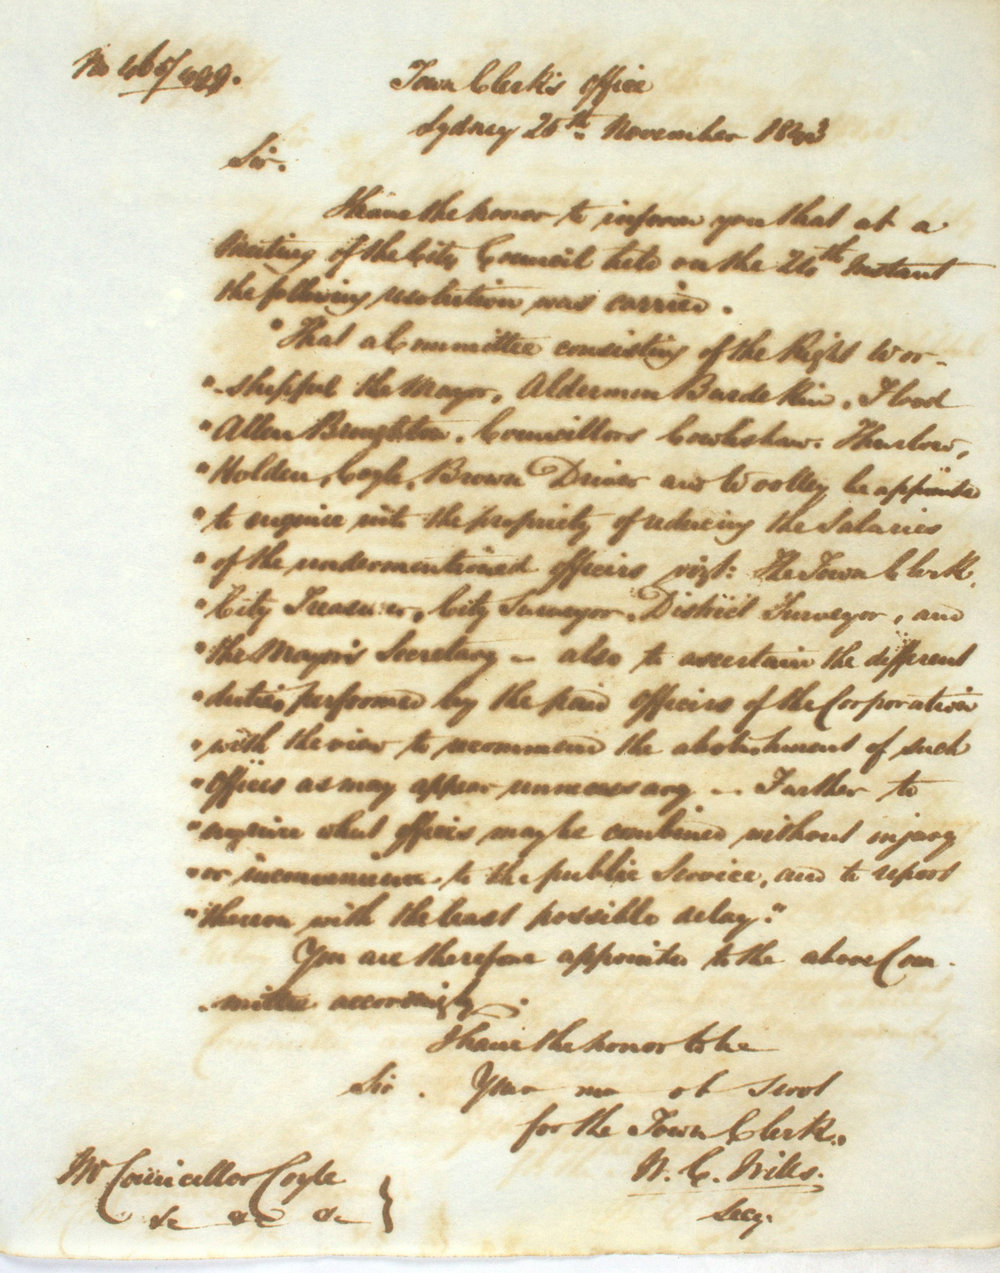 Town Clerk's Office
Sydney 25th November 1843
Sir.
I have the honor to inform you that at a
Meeting of the City Council held on the 24th Instant
the following resolution was carried.
"That a Committee consisting of the Right Wor-
"-shipful the Mayor, Aldermen Burdekin, Flood
"Allen Broughton, Councillors Cowlishaw. Thurlow,
"Holden, Coyle, Brown Driver and Woolley be appointed
"to enquire into the propriety of reducing the Salaries
"of the undermentioned officers vizt: The Town Clerk,
"City Treasurer, City Surveyor, District Surveyor, and
"the Mayor's Secretary – also to ascertain the different
"duties performed by the paid officers of the Corporation
"with the view to recommend the abolishment of such
"offices as may appear unnecessary – Further to
"enquire what offices may be combined without injury
"or inconvenience to the public Service, and to report
"thereon with the least possible delay."
You are therefore appointed to the above Com-
-mittee accordingly.
I have the honor to be
Sir. Your mo ob Servt
for the Town Clerk.
W. C. Wills.
Secy.
Mr Councellor Coyle
&c &c &c